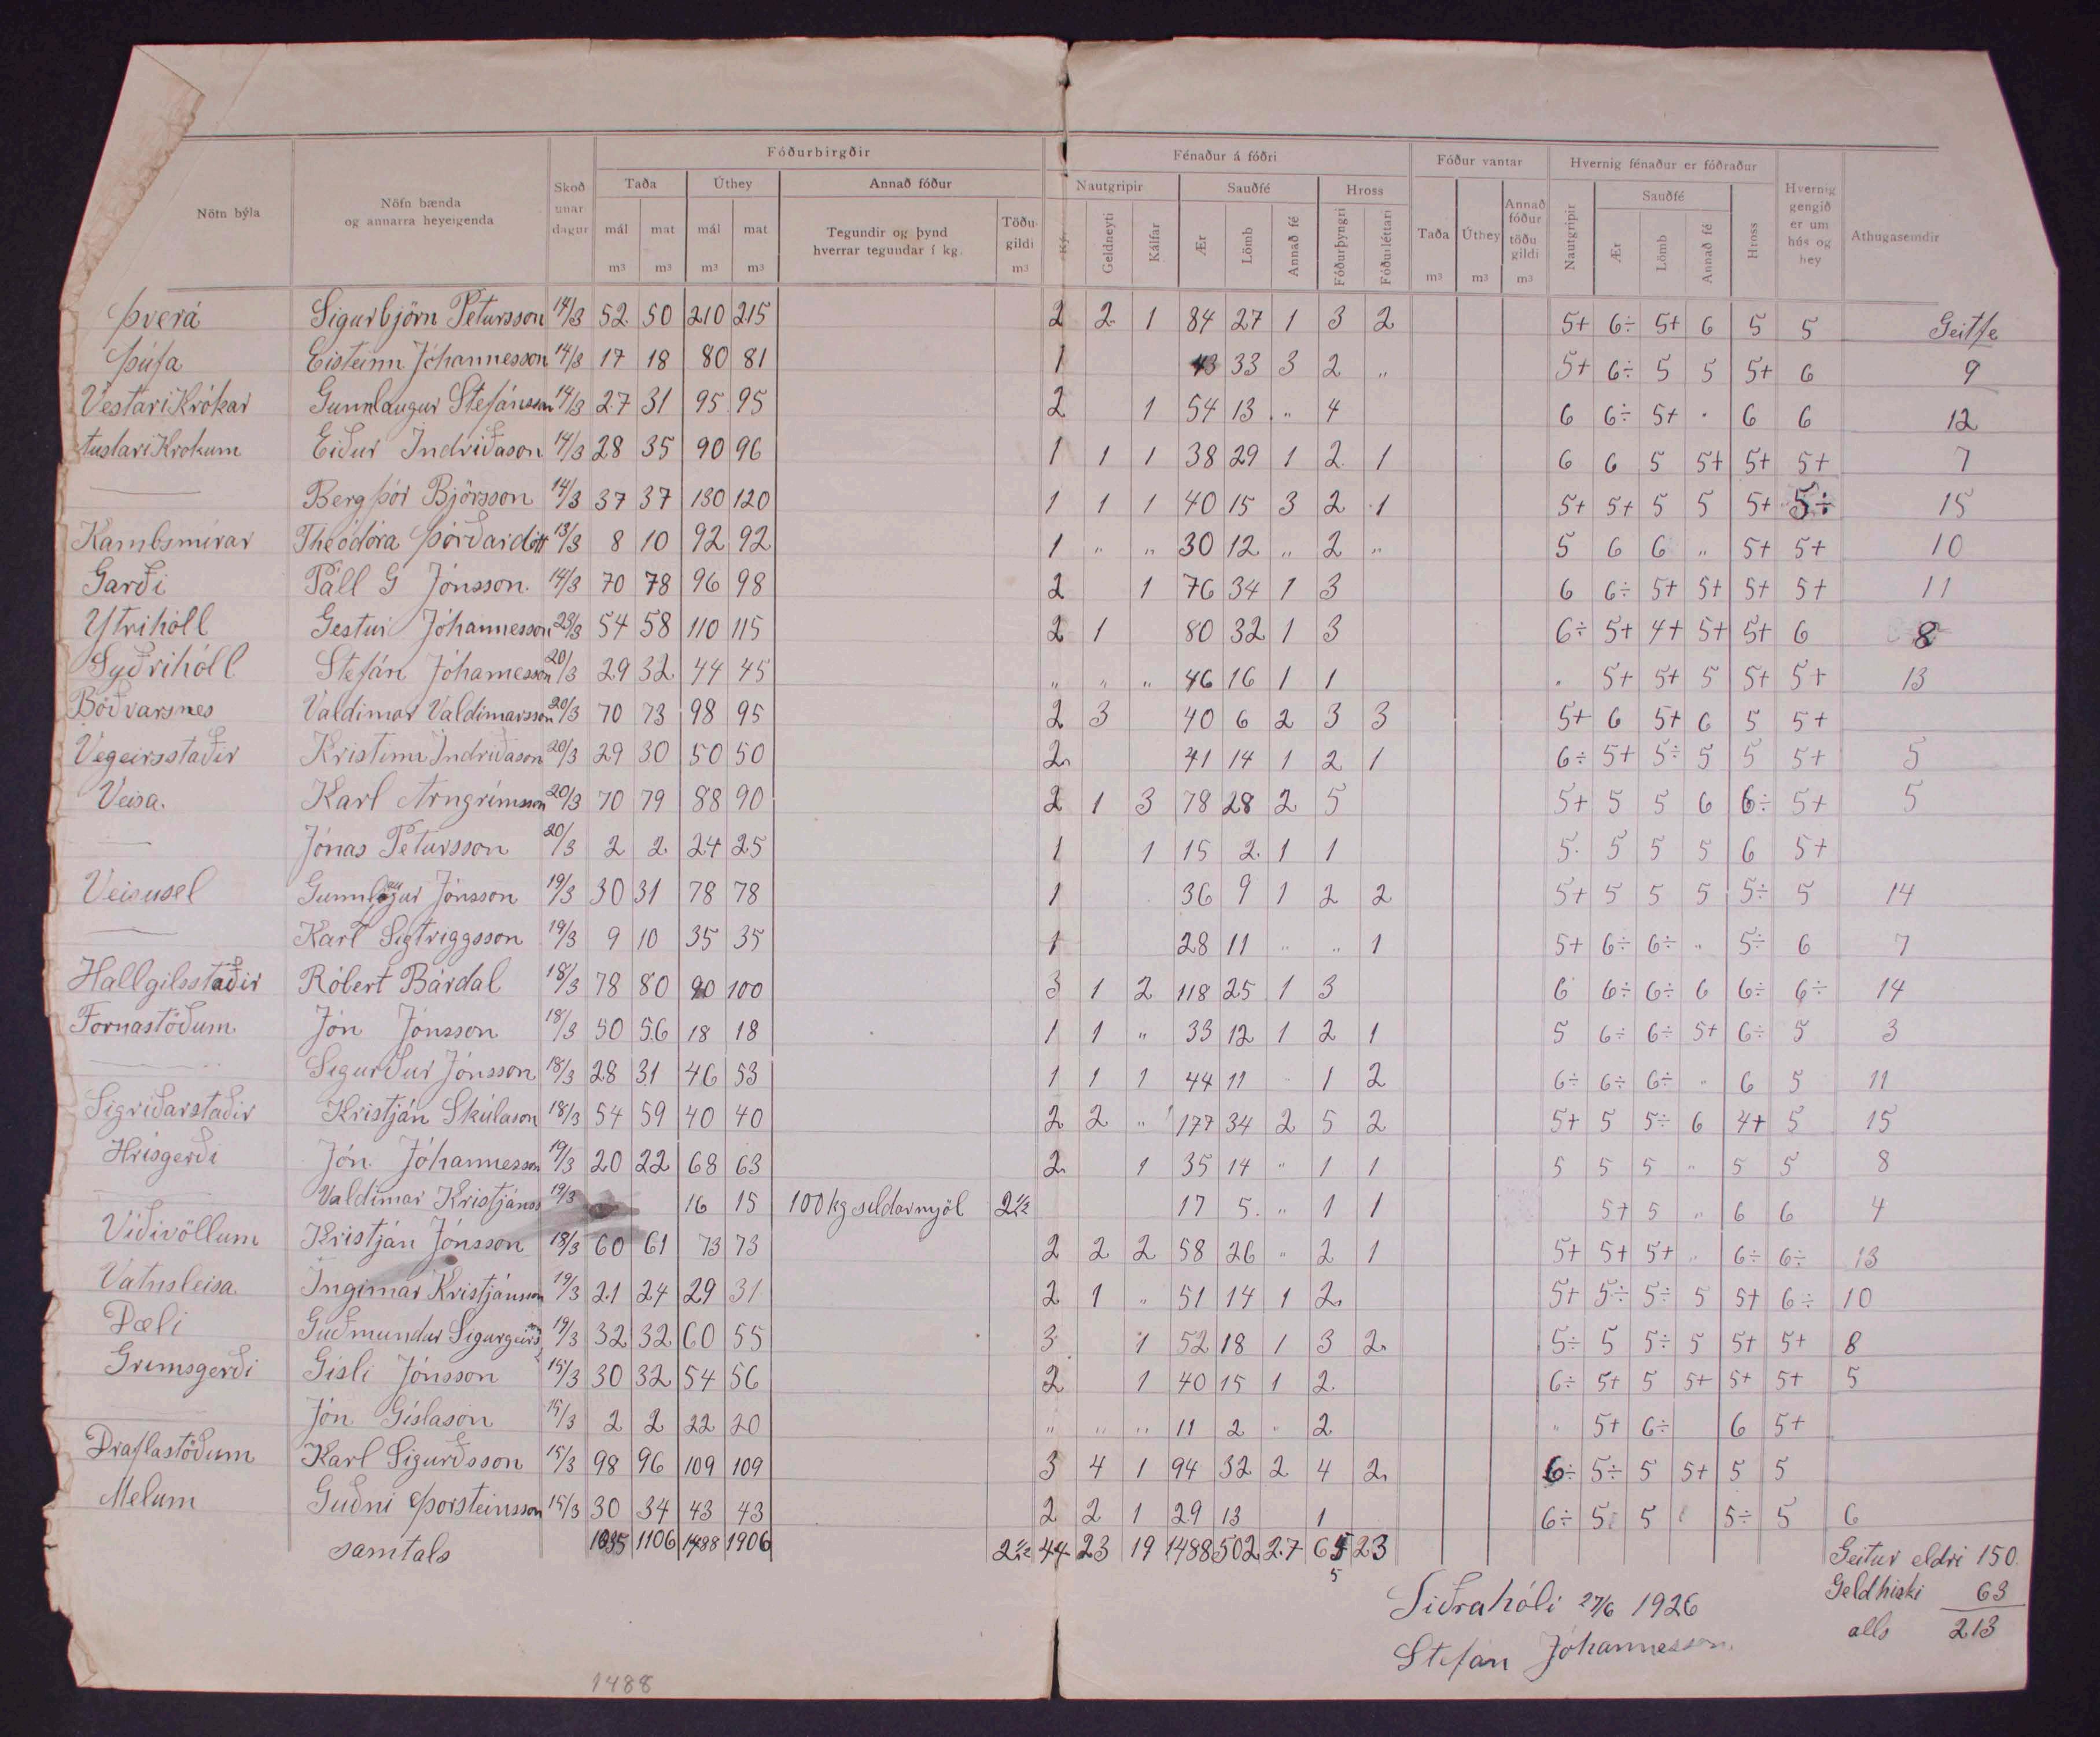 Fóðurbirgðir Fénaður á fóðri Fóður vantar Hvernig fénaður er fóðraður
Nöfn býla Nöfn bænda og annarra heyeigenda Skoð unar dagur Taða Úthey Annað fóður Nautgripir Sauðfé Hross Taða Úthey Annað fóður töðu gildi Nautgripir Sauðfé Hross Hvernig gengið er um hús og hey Athugasemdir
mál mat mál mat Tegundir og þynd hverrar tegundar í kg. Töðu gildi Kýr Geldneyti Kálfar Ær Lömb Annað fé Fóðurþyngri Fóðurléttari Ær Lömb Annað fé
m³ m³ m³ m³ m³ m³ m³ m³
Þverá Sigurbjörn Petursson 14/3 52 50 210 215 2 2 1 84 27 1 3 2 5+ 6÷ 5+ 6 5 5 Geitfe
Þúfa Eisteinn Jóhannesson 14/3 17 18 80 81 1 43 33 3 2 „ 5+ 6÷ 5 5 5+ 6 9
Vestari Krókar Gunnlaugur Stefánsson 14/3 27 31 95 95 2 1 54 13 „ 4 6 6÷ 5+ . 6 6 12
Austari Krokum Eiður Indriðason 14/3 28 35 90 96 1 1 1 38 29 1 2 1 6 6 5 5+ 5+ 5+ 7
— Bergþór Björsson 14/3 37 37 130 120 1 1 1 40 15 3 2 1 5+ 5+ 5 5 5+ 5÷ 15
Kambsmírar Theódóra Þórðardótt 13/3 8 10 92 92 1 „ „ 30 12 „ 2 „ 5 6 6 „ 5+ 5+ 10
Garði Páll G Jónsson. 14/3 70 78 96 98 2 1 76 34 1 3 6 6÷ 5+ 5+ 5+ 5+ 11
Ytrihóll Gestur Jóhannesson 23/3 54 58 110 115 2 1 80 32 1 3 6÷ 5+ 4+ 5+ 5+ 6 8
Syðrihóll Stefán Jóhannesson 20/3 29 32 44 45 „ „ „ 46 16 1 1 „ 5+ 5+ 5 5+ 5+ 13
Böðvarsnes Valdimar Valdimarsson 20/3 70 73 98 95 2 3 40 6 2 3 3 5+ 6 5+ 6 5 5+
Vegeirsstaðir Kristinn Indriðason 20/3 29 30 50 50 2 41 14 1 2 1 6÷ 5+ 5÷ 5 5 5+ 5
Veisa. Karl Arngrímsson 20/3 70 79 88 90 2 1 3 78 28 2 5 5+ 5 5 6 6÷ 5+ 5
— Jónas Petursson 20/3 2 2 24 25 1 1 15 2 1 1 5 5 5 5 6 5+
Veisusel Gunnlaugur Jónsson 19/3 30 31 78 78 1 36 9 1 2 2 5+ 5 5 5 5÷ 5 14
— Karl Sigtriggsson 19/3 9 10 35 35 1 28 11 „ „ 1 5+ 6÷ 6÷ „ 5÷ 6 7
Hallgilsstaðir Róbert Bárdal 18/3 78 80 90 100 3 1 2 118 25 1 3 6 6÷ 6÷ 6 6÷ 6÷ 14
Fornastöðum Jón Jónsson 18/3 50 56 18 18 1 1 „ 33 12 1 2 1 5 6÷ 6÷ 5+ 6÷ 5 3
— Sigurður Jónsson 18/3 28 31 46 53 1 1 1 44 11 „ 1 2 6÷ 6÷ 6÷ „ 6 5 11
Sigriðarstaðir Kristján Skúlason 18/3 54 59 40 40 2 2 „ 177 34 2 5 2 5+ 5 5÷ 6 4+ 5 15
Hrísgerði Jón. Jóhannesson 19/3 20 22 68 63 2 1 35 14 „ 1 1 5 5 5 „ 5 5 8
— Valdimar Kristjánss 19/3 16 15 100 kg sildarmjöl 2½ 17 5 „ 1 1 5+ 5 „ 6 6 4
Viðivöllum Kristján Jónsson 18/3 60 61 73 73 2 2 2 58 26 „ 2 1 5+ 5+ 5+ „ 6÷ 6÷ 13
Vatnsleisa Ingimar Kristjánsson 19/3 21 24 29 31 2 1 „ 51 14 1 2 5+ 5÷ 5÷ 5 5+ 6÷ 10
Dæli Guðmundur Sigurgeirs 19/3 32 32 60 55 3 1 52 18 1 3 2 5÷ 5 5÷ 5 5+ 5+ 8
Grímsgerði Gísli Jónsson 15/3 30 32 54 56 2 1 40 15 1 2 6÷ 5+ 5 5+ 5+ 5+ 5
Jón Gíslason 15/3 2 2 22 20 „ „ „ 11 2 „ 2 „ 5+ 6÷ 6 5+
Draflastöðum Karl Sigurðsson 15/3 98 96 109 109 3 4 1 94 32 2 4 2 6÷ 5÷ 5 5+ 5 5
Melum Guðni Þorsteinsson 15/3 30 34 43 43 2 2 1 29 13 1 6÷ 5 5 5÷ 5 6
samtals 1035 1106 1988 1906 2½ 44 23 19 1488 502 27 65 23
5
Geitur eldri 150.
Siðrahóli 27/6 1926
Geldhiski 63
Stefán Jóhannesson.
alls 213
1488